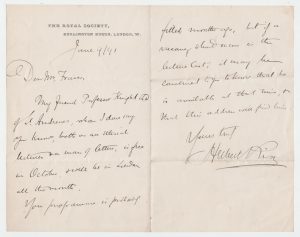 THE ROYAL SOCIETY,
BURLINGTON HOUSE, LONDON, W.
June 9/91
Dear Mr
My friend Professor Knight
of St Andrews, whom I daresay
you know, both as an
lecturer & man of letters, is free
in October, & will be in London
all the month.
Your programme is probably
filled months ago, but if a
vacancy should occur in the
lecture list, it may be
convenient to you to know that he
is available at that time, &
that this address will find him.
Yours truly
Herbert Rix